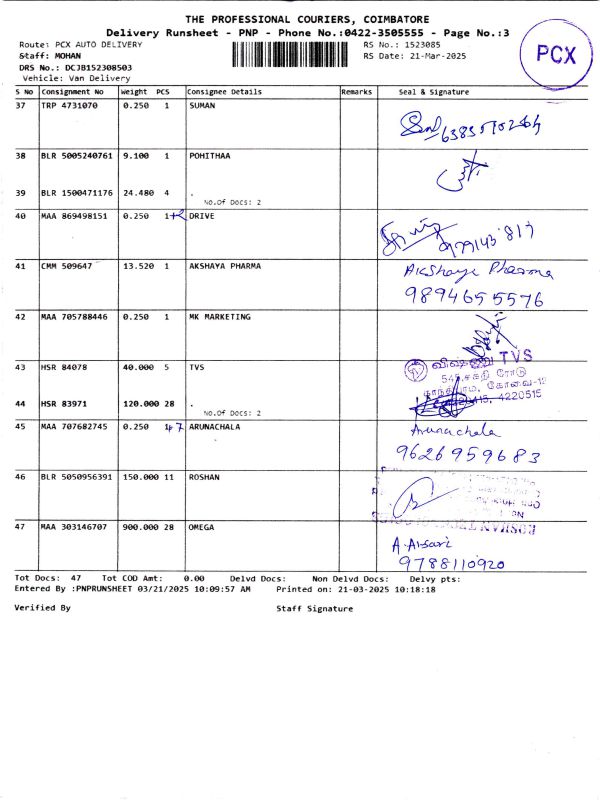 THE PROFESSIONAL COURIERS, COIMBATORE
Delivery Runsheet - PNP - Phone No.:0422-3505555 - Page No.:3
Route: PCX AUTO DELIVERY
RS No.: 1523085
Staff: MOHAN
RS Date: 21-Mar-2025
DRS No.: DCJB152308503
Vehicle: Van Delivery
PCX
S No Consignment No Weight PCS Consignee Details Remarks Seal & Signature
37 TRP 4731070 0.250 1 SUMAN
38 BLR 5005240761 9.100 1 POHITHAA
39 BLR 1500471176 24.480 4 .
No.Of Docs: 2
40 MAA 869498151 0.250 1+2 DRIVE
41 CMM 509647 13.520 1 AKSHAYA PHARMA Akshaya Pharma
9894655576
42 MAA 705788446 0.250 1 MK MARKETING
43 HSR 84078 40.000 5 TVS
TVS
545, சக்தி ரோடு
கோவை-12
4220515
44 HSR 83971 120.000 28 .
No.Of Docs: 2
45 MAA 707682745 0.250 ARUNACHALA Arunachala
9626959683
46 BLR 5050956391 150.000 11 ROSHAN
47 MAA 303146707 900.000 28 OMEGA
A. Ansari
9788110920
Tot Docs: 47 Tot COD Amt: 0.00 Delvd Docs: Non Delvd Docs: Delvy pts:
Entered By :PNPRUNSHEET 03/21/2025 10:09:57 AM Printed on: 21-03-2025 10:18:18
Verified By Staff Signature